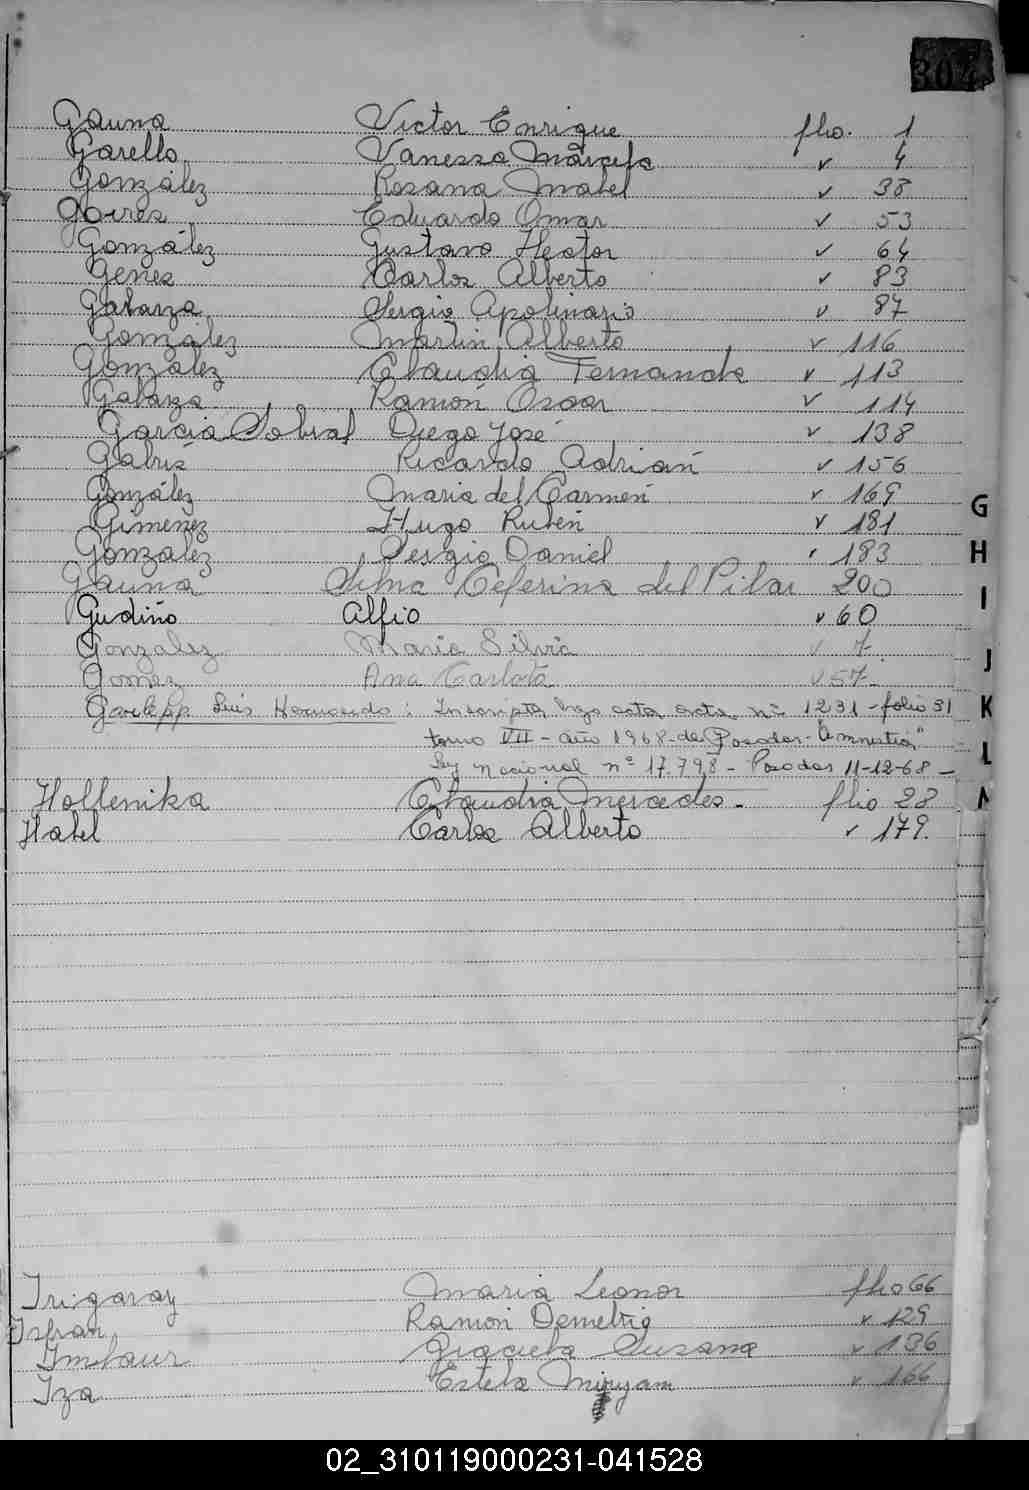 304
Gauna Victor Enrique flio. 1
Garello Vanessa Marcela v 4
González Rosana Mabel v 38
Goires Eduardo Omar v 53
González Gustavo Hector v 64
Genes Carlos Alberto v 83
Galarza Sergio Apolinario v 87
González Martin Alberto v 116
González Claudia Fernanda v 113
Galarza Ramón Oscar v 114
Garcia Sobral Diego José v 138
Gabris Ricardo Adrián v 156
González Maria del Carmen v 169
Giménez Hugo Rubén v 181
González Sergio Daniel v 183
Gauna Selma Ceferina del Pilar 200
Gudiño Alfio v 60
Gonzalez Maria Silvia v 7
Gomez Ana Carlota v 57
Luis Hernando: Inscripta bajo esta acta nº 1231 - folio 31
tomo VII - año 1968 - de Posadas - "Amnistia"
Ley Nacional nº 17.798 - Posadas 11-12-68 -
Hollenika Claudia Mercedes - flio 28
Habel Carlos Alberto v 179.
Irigaray Maria Leonor flio 66
Isfran Ramon Demetrio v 129
Imlaur Graciela Susana v 136
Iza Estela Miryam v 166
G
H
I
J
K
L
02_310119000231-041528